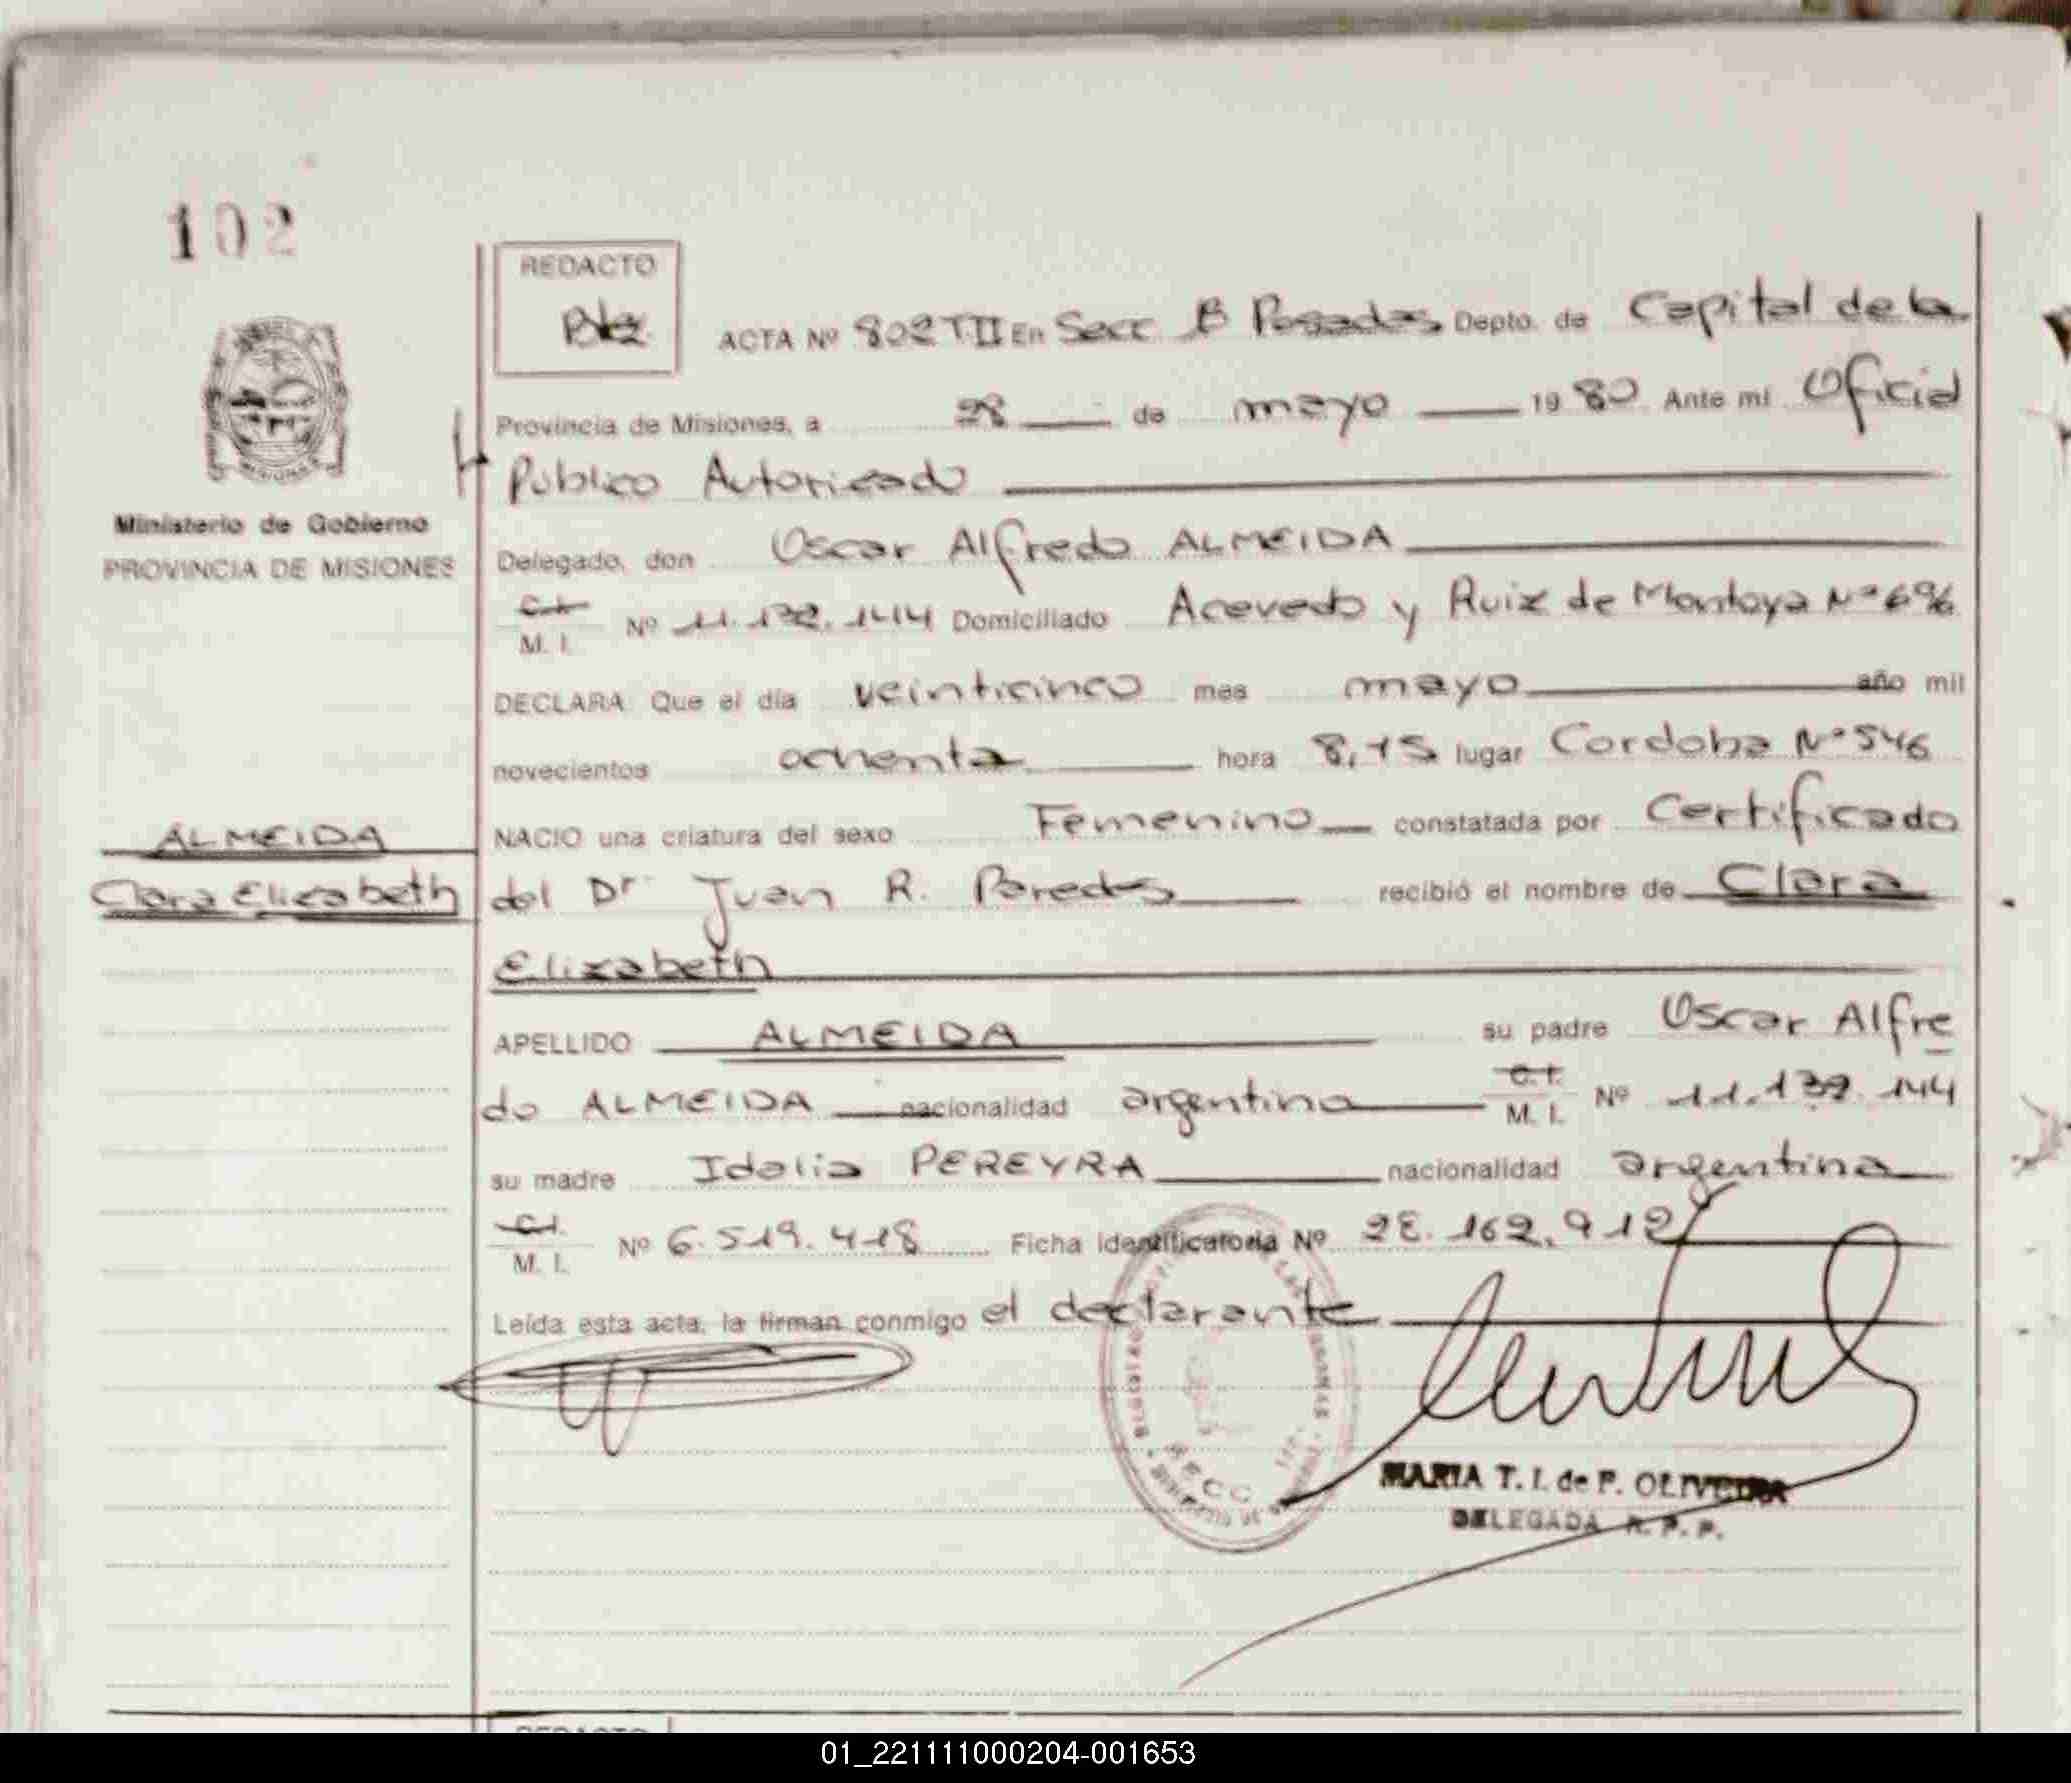 102
REDACTO
ACTA Nº 802 T.II En Secc B Posadas Depto. de Capital de la
Provincia de Misiones, a 28 de mayo 1980 Ante mí Oficial
Público Autorizado
Ministerio de Gobierno
PROVINCIA DE MISIONES
Delegado, don Oscar Alfredo ALMEIDA
C.I.
M. I. Nº 11.132.144 Domiciliado Acevedo y Ruiz de Montoya Nº 696
DECLARA: Que el día veinticinco mes mayo año mil
novecientos ochenta hora 8,15 lugar Cordoba Nº 546
ALMEIDA
Clara Elizabeth
NACIO una criatura del sexo Femenino constatada por Certificado
del Dr Juan R. Paredes recibió el nombre de Clara
Elizabeth
APELLIDO ALMEIDA su padre Oscar Alfre
do ALMEIDA nacionalidad argentina C.I.
M. I. Nº 11.132.144
su madre Idalia PEREYRA nacionalidad argentina
C.I.
M. I. Nº 6.519.418 Ficha identificatoria Nº 28.162.912
Leída esta acta, la firman conmigo el declarante
MARIA T. I. de P. OLIVEIRA
DELEGADA R. P. P.
REDACTO
01_221111000204-001653